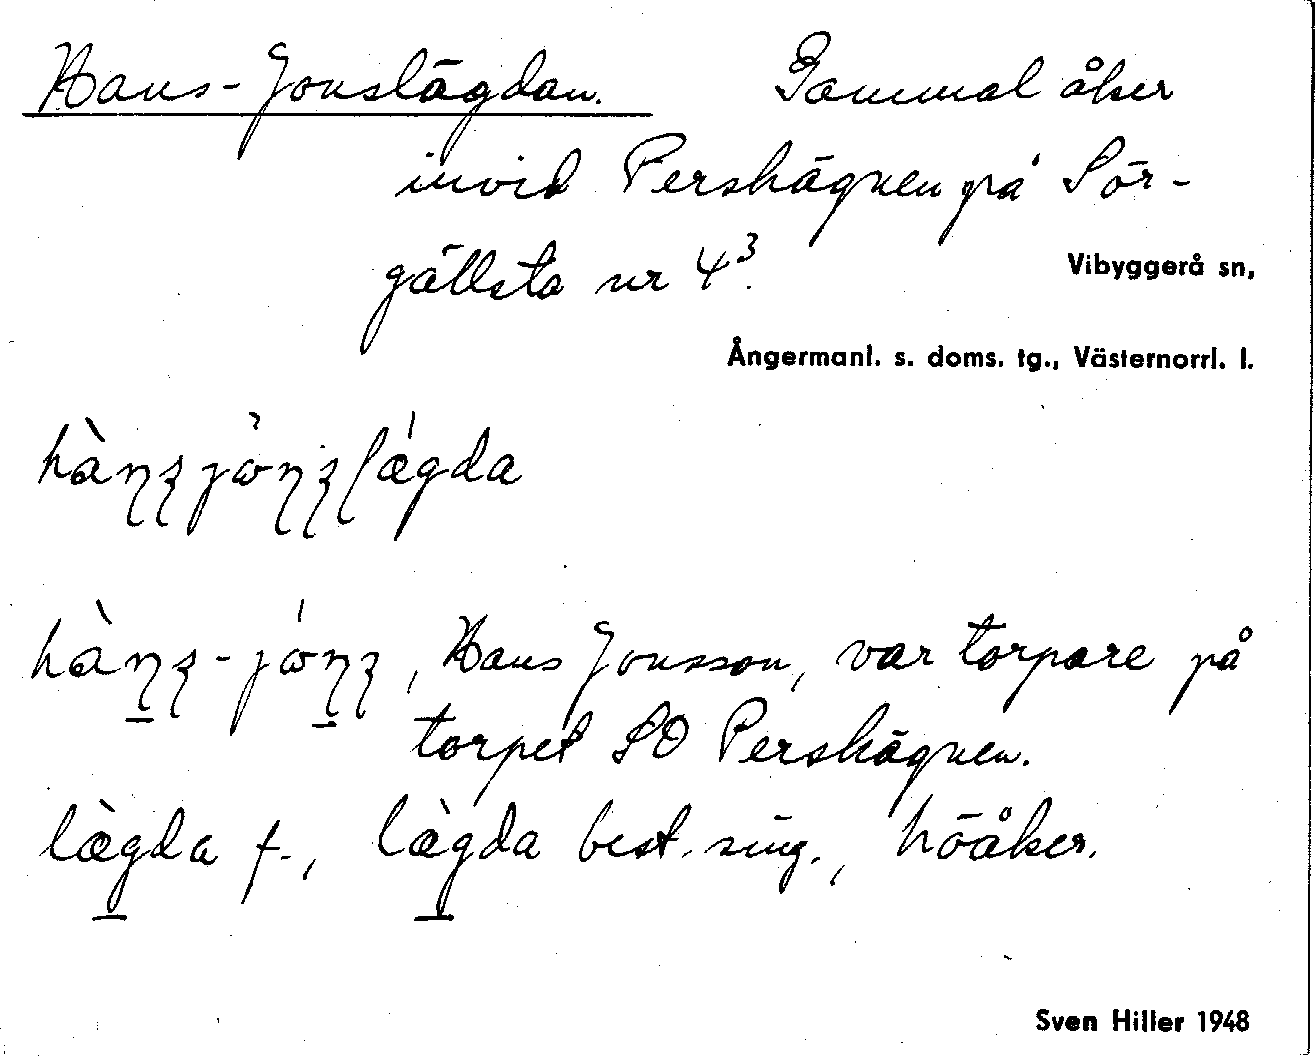 Hans-Jonslägdan. Gammal åker
invid Pershägnen på Sör-
gällsta nr 4³.
Vibyggerå sn,
Ångermanl. s. doms. tg., Västernorrl. l.
hàꞃʂjɷ̀ꞃʂlǽgda
hàꞃʂ-jɷ́ꞃʂ, Hans Jonsson, var torpare på
torpet SO Pershägnen.
læ̀gda f., læ̀gda best. sing., höåker.
Sven Hiller 1948